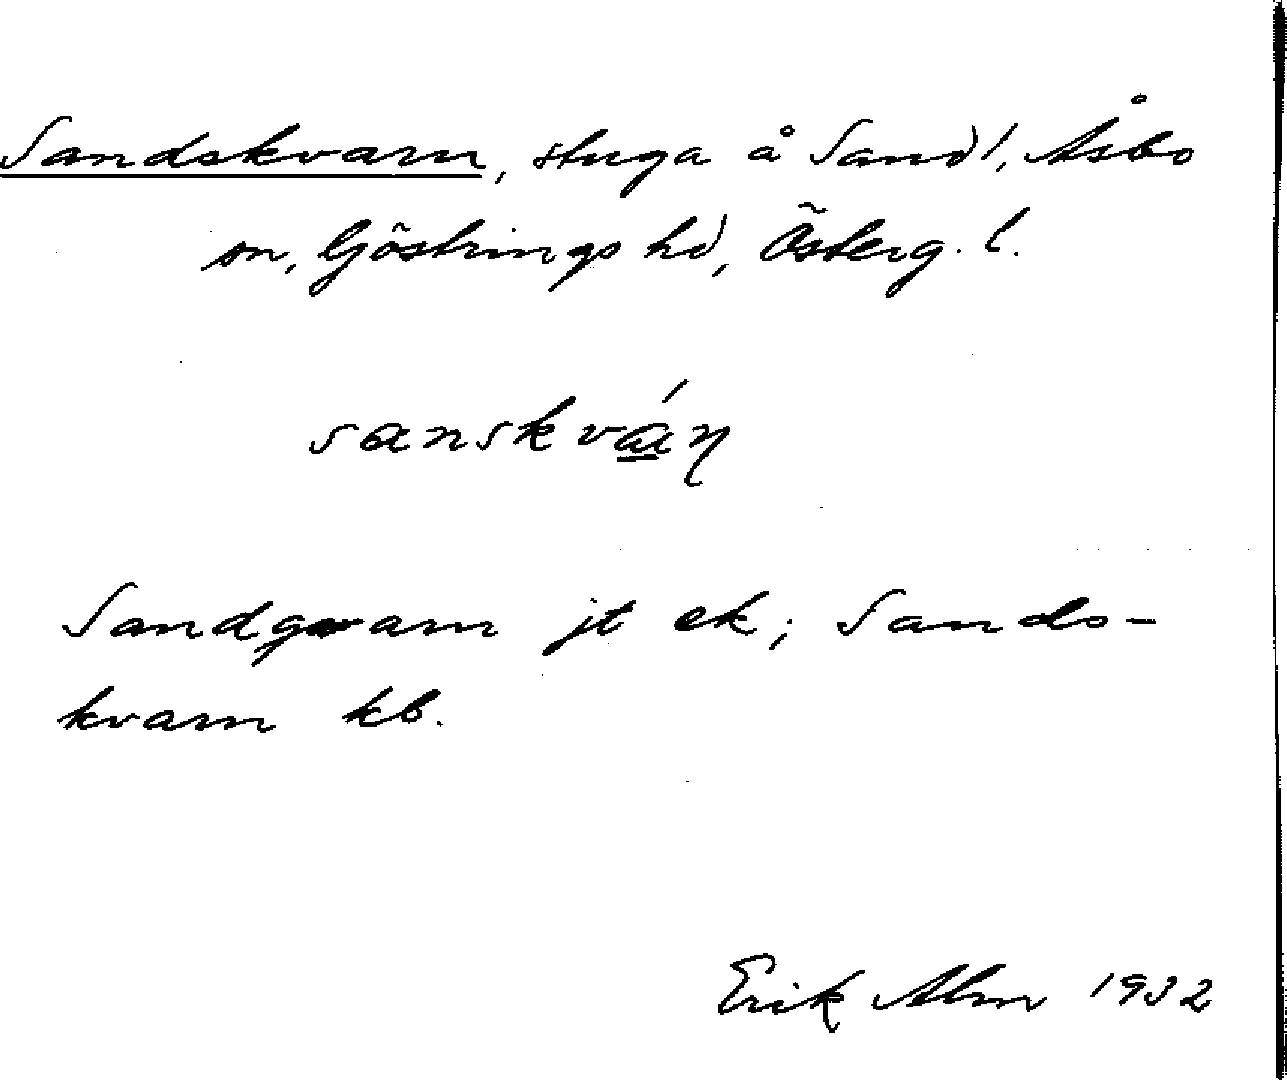 Sandskvarn, stuga å Sand 1, Åsbo
sn, Göstrings hd, Österg. l.
sanskvá̱ɳ
Sandqvarn jt ek; Sands-
kvarn kb.
Erik Alm 1932